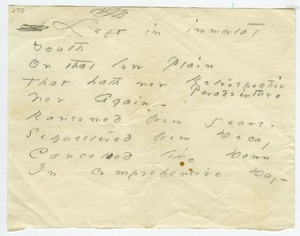 270
Left in immortal
Youth
On that low Plain
That hath nor Retrospection
Nor Again -
Peradventure
Ransomed from years -
Sequestered from Decay
Cancelled like Dawn
In Comprehensive Day -